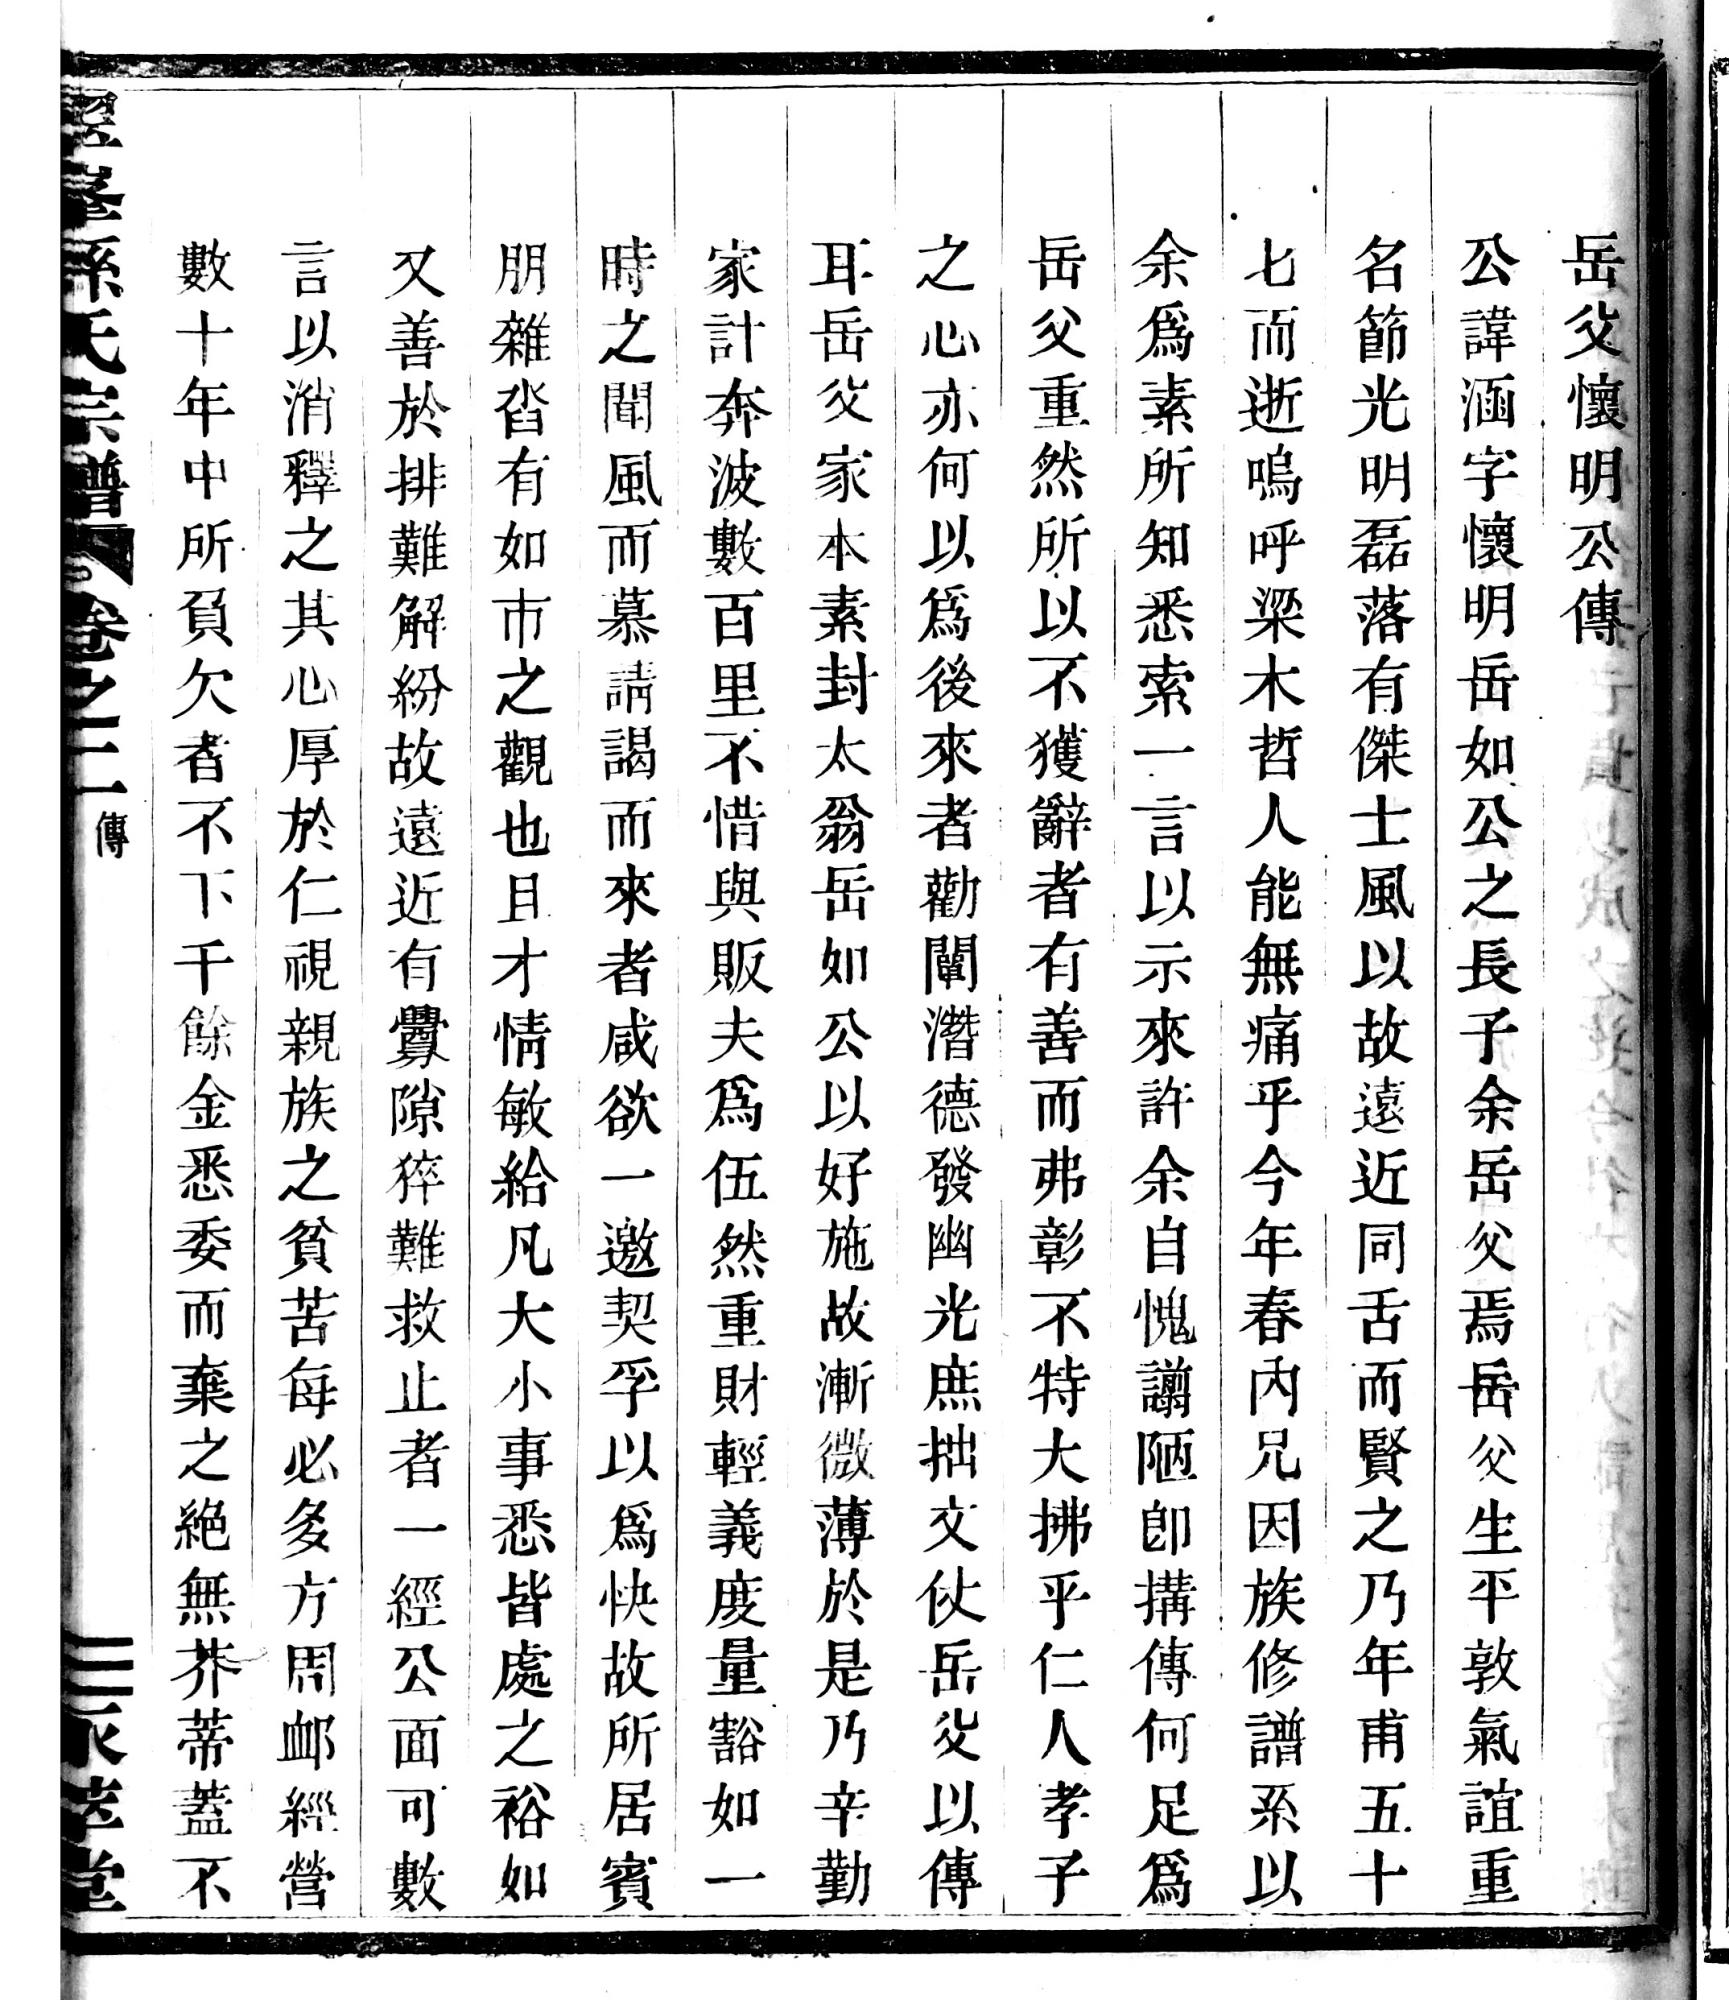 岳父懷明公傳
公諱涵字懷明岳如公之長子余岳父焉岳父生平敦氣誼重
名節光明磊落有傑士風以故遠近同舌而賢之乃年甫五十
七而逝嗚呼梁木哲人能無痛乎今年春內兄因族修譜系以
余爲素所知悉索一言以示來許余自愧譾陋卽搆傳何足爲
岳父重然所以不獲辭者有善而弗彰不特大拂乎仁人孝子
之心亦何以爲後來者勸闡潛德發幽光庶拙文仗岳父以傳
耳岳父家本素封太翁岳如公以好施故漸微薄於是乃辛勤
家計奔波數百里不惜與販夫爲伍然重財輕義度量豁如一
時之聞風而慕請謁而來者咸欲一邀契孚以爲快故所居賓
朋雜沓有如市之觀也且才情敏給凡大小事悉皆處之裕如
又善於排難解紛故遠近有釁隙猝難救止者一經公面可數
言以消釋之其心厚於仁視親族之貧苦每必多方周衈經營
數十年中所負欠者不下千餘金悉委而棄之絕無芥蒂蓋不
孫氏宗譜 卷之二 傳
萃堂